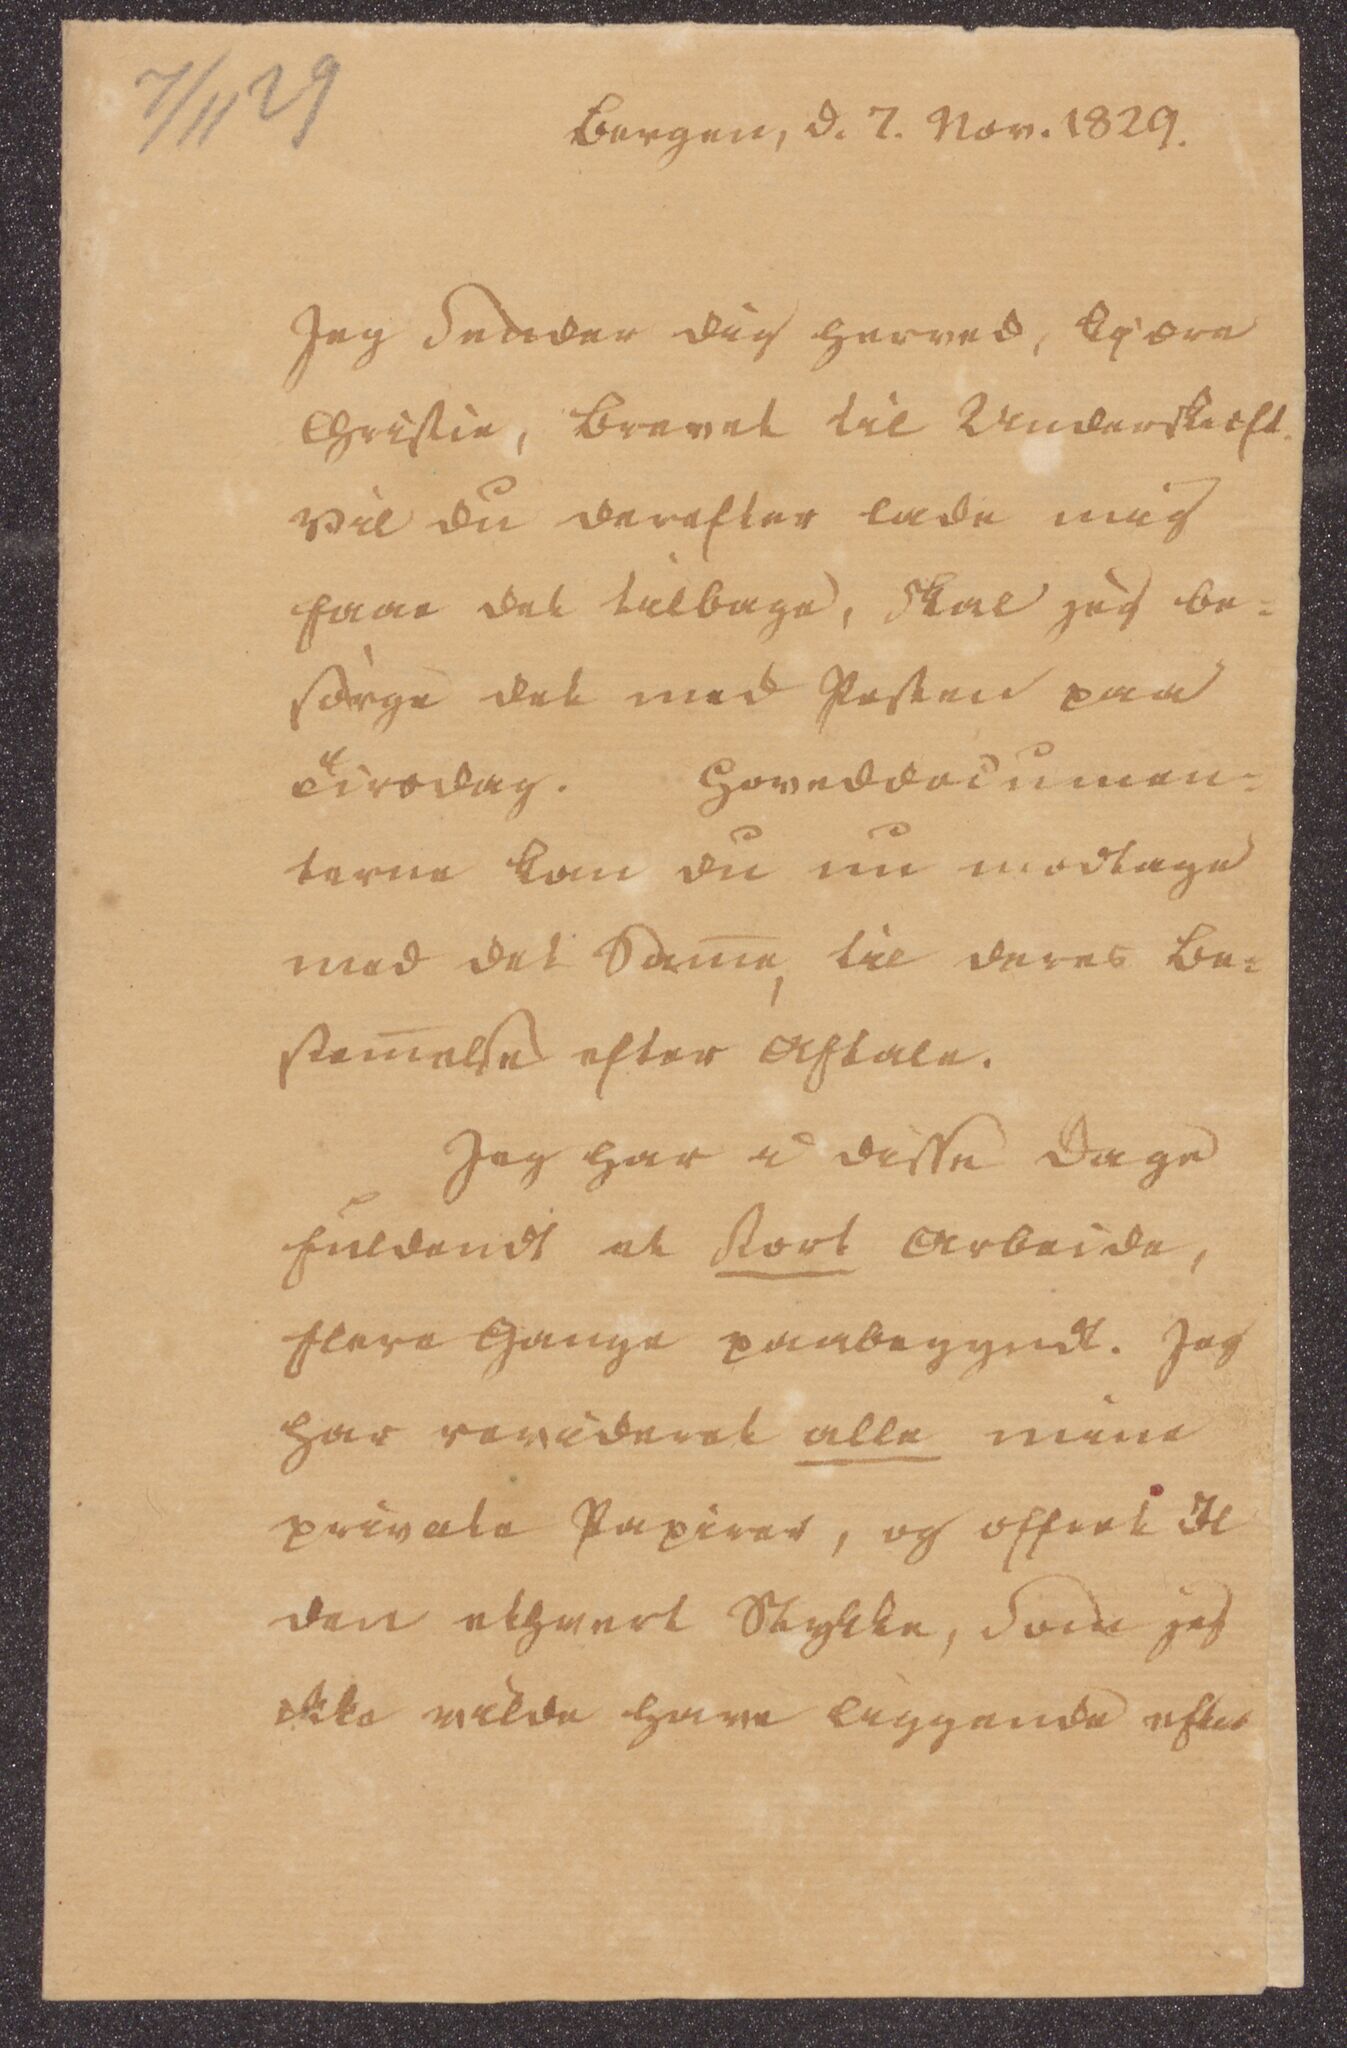 7/11 29
Bergen, d. 7. Nov. 1829.
Jeg sender dig herved, kjære
Christie, Brevet til Underskrift.
Vil du derefter lade mig
faae det tilbage, skal jeg be-
sørge det med Posten paa
Tirsdag. Hoveddocumen-
terne kan du nu modtage
med det Sam̅e, til deres Be-
stem̅else efter Aftale.
Jeg har i disse Dage
fuldendt et stort Arbeide,
flere Gange paabegyndt. Jeg
har revideret alle mine
private Papirer, og offret Il
den ethvert Stykke, som jeg
ikke vilde have liggende efter